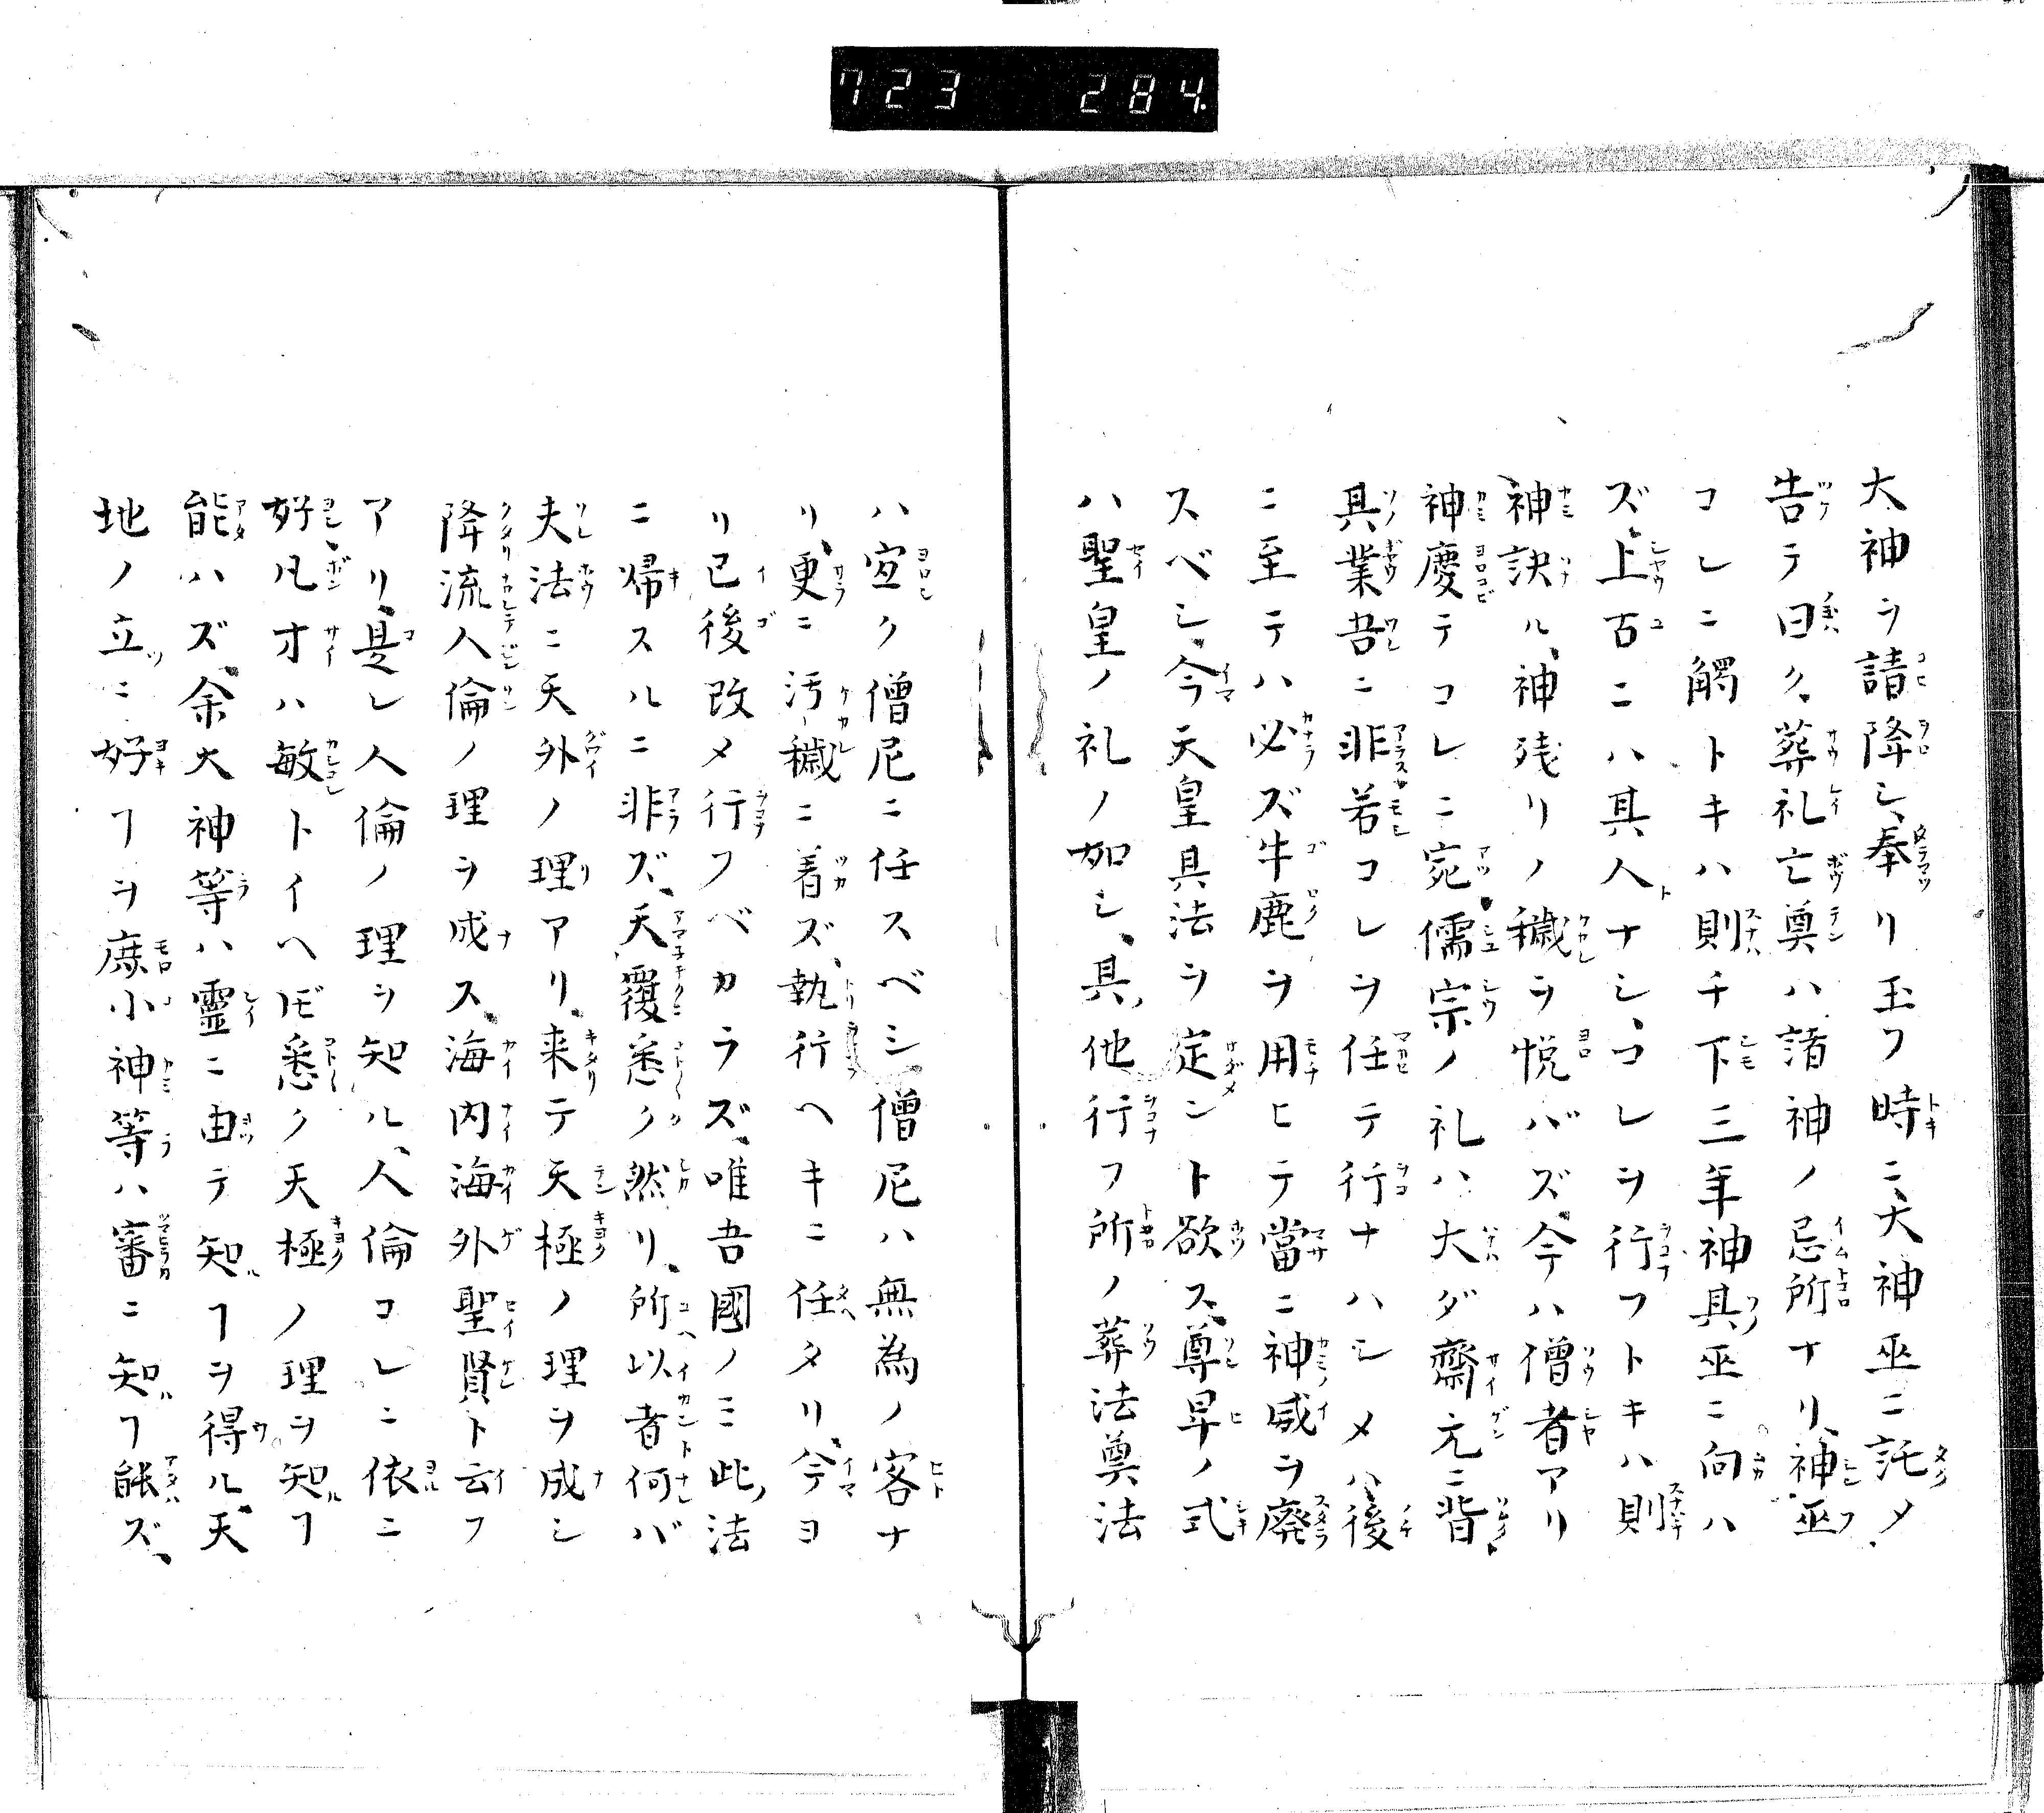 723 284.
大神ヲ請降シ奉リ玉フ時ニ、大神巫ニ託メ
告テ曰ク、葬礼亡奠ハ諸神ノ忌所ナリ、神巫
コレニ觸トキハ則チ下三年神具巫ニ向ハ
ズ、上古ニハ其人ナシ、コレヲ行フトキハ則
神訣ル、神残リノ穢ヲ悦バズ、今ハ僧者アリ
神慶テコレニ宛、儒宗ノ礼ハ大ダ齋元ニ背、
具業吾ニ非若コレヲ任テ行ナハシメハ後
ニ至テハ必ズ牛鹿ヲ用ヒテ當ニ神威ヲ廃
スベシ、今天皇具法ヲ定ント欲ス、尊卑ノ式
ハ聖皇ノ礼ノ如シ、具他行フ所ノ葬法奠法
ハ宜ク僧尼ニ任スベシ、僧尼ハ無為ノ客ナ
リ、更ニ汚穢ニ着ズ、執行ヘキニ任タリ、今ヨ
リ已後改メ行フベカラズ、唯吾國ノミ此法
ニ帰スルニ非ズ、天覆悉ク然リ、所以者何バ
夫法ニ天外ノ理アリ、来テ天極ノ理ヲ成シ
降流人倫ノ理ヲ成ス、海内海外聖賢ト云フ
アリ、是レ人倫ノ理ヲ知ル、人倫コレニ依ニ
好、凡才ハ敏トイヘ𪜈悉ク天極ノ理ヲ知ヿ
能ハズ、余大神等ハ靈ニ由テ知ヿヲ得ル、天
地ノ立ニ好ヿヲ庶小神等ハ審ニ知ヿ能ズ、